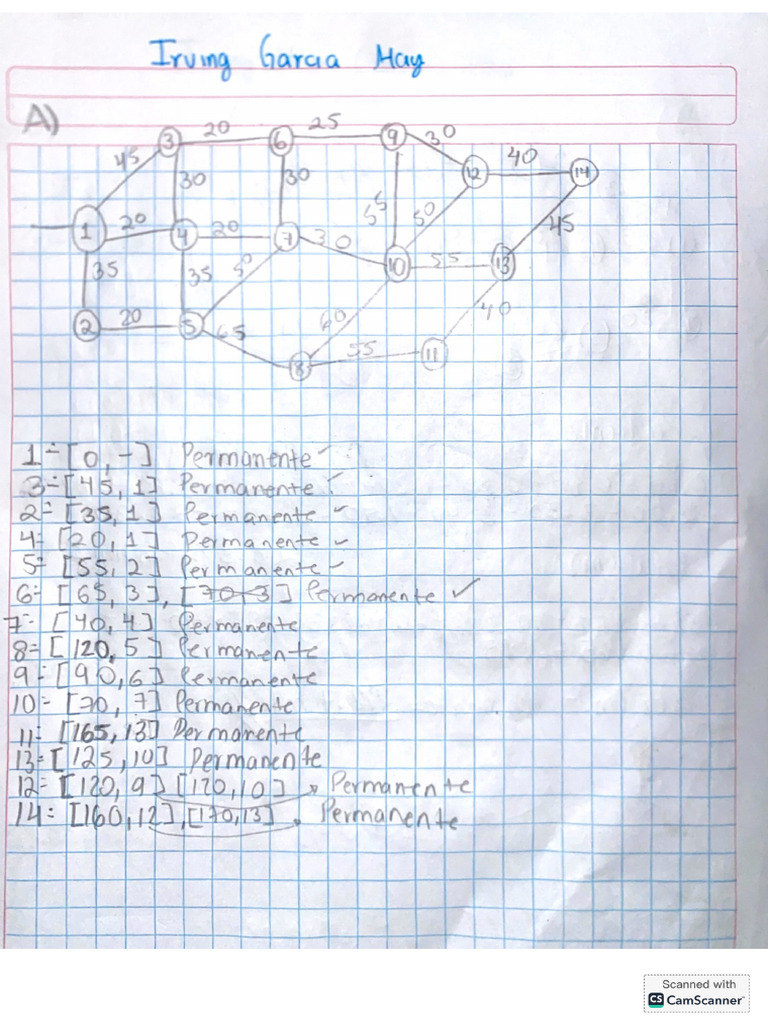 Irving Garcia May
A)
3 20 6 25 9 30
45 30 30 12 40 14
1 20 4 20 7 30 55 50 45
35 35 50 10 55 13
2 20 5 65 60 40
8 55 11
1=[0,-] Permanente ✓
3=[45,1] Permanente ✓
2=[35,1] Permanente ✓
4=[20,1] Permanente ✓
5=[55,2] Permanente ✓
6=[65,3],[70,3] Permanente ✓
7=[40,4] Permanente
8=[120,5] Permanente
9=[90,6] Permanente
10=[70,7] Permanente
11=[165,13] Permanente
13=[125,10] Permanente
12=[120,9] [120,10] Permanente
14=[160,12],[170,13] Permanente
Scanned with
CS CamScanner